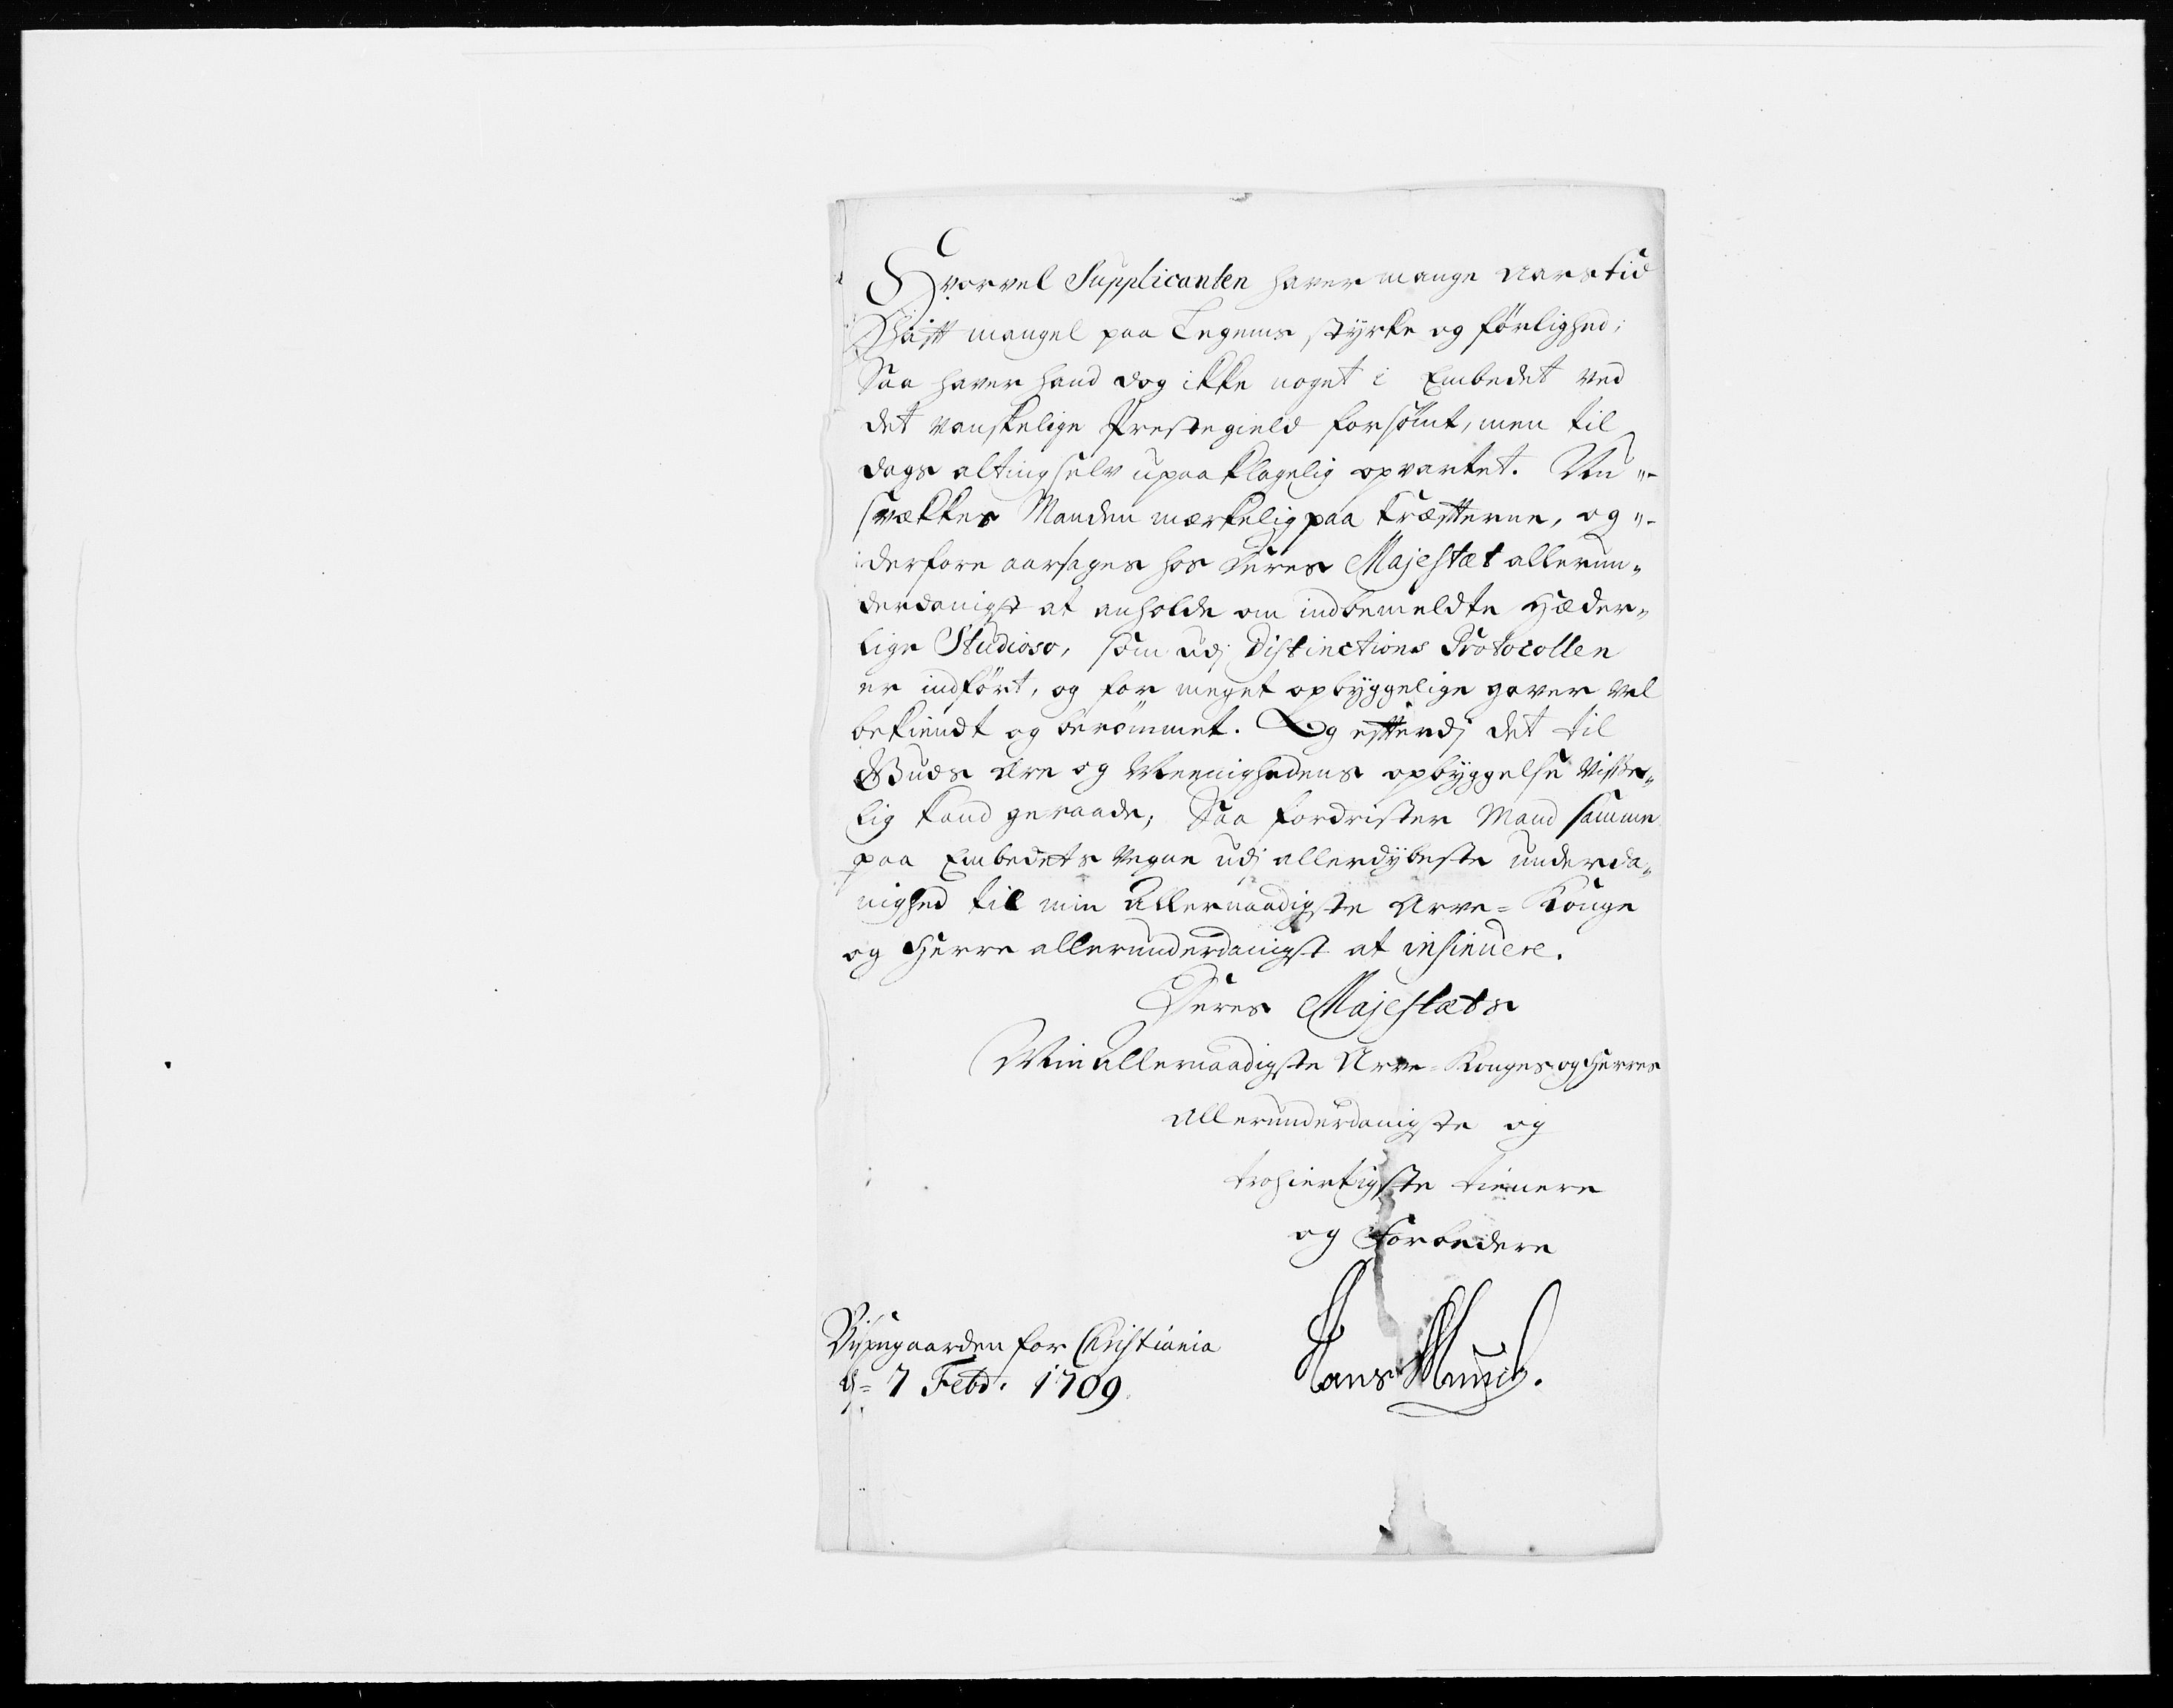 Hvorvel Supplicanten haver mange Aars tid
Hafft mangel paa Legems styrke og førlighed;
Saa haver hand dog ikke noget i Embedet ved
det vanskelige Prestegield forsømt, men til
dags alting selv upaaklagelig opvartet. Nu
svækkes Manden mærkelig paa kræffterne, og
derfore aarsages hos Deres Majestæt allerun„
derdanigst at anholde om indbemeldte Hæder„
lige Studioso, som udj Distinctions Protocollen
er indført, og for meget opbyggelige gaver vel
bekiendt og berømmet. Og effterdj det til
Guds Ære og Meenighedens opbyggelse visse„
lig kand geraade; Saa fordrister Mand samme
paa Embedets vegne udj allerdybeste underda„
nighed til min Allernaadigste Arve= Konge
og Herre allerunderdanigst at insinuere.
Deres Majestæts
Min Allernaadigste Arve= Konges og Herres
Allerunderdanigste og
trohiertigste tienere
og Forbedere
Bispegaarden for Christiania
d= 7 Febr. 1709.
Hans Munch.